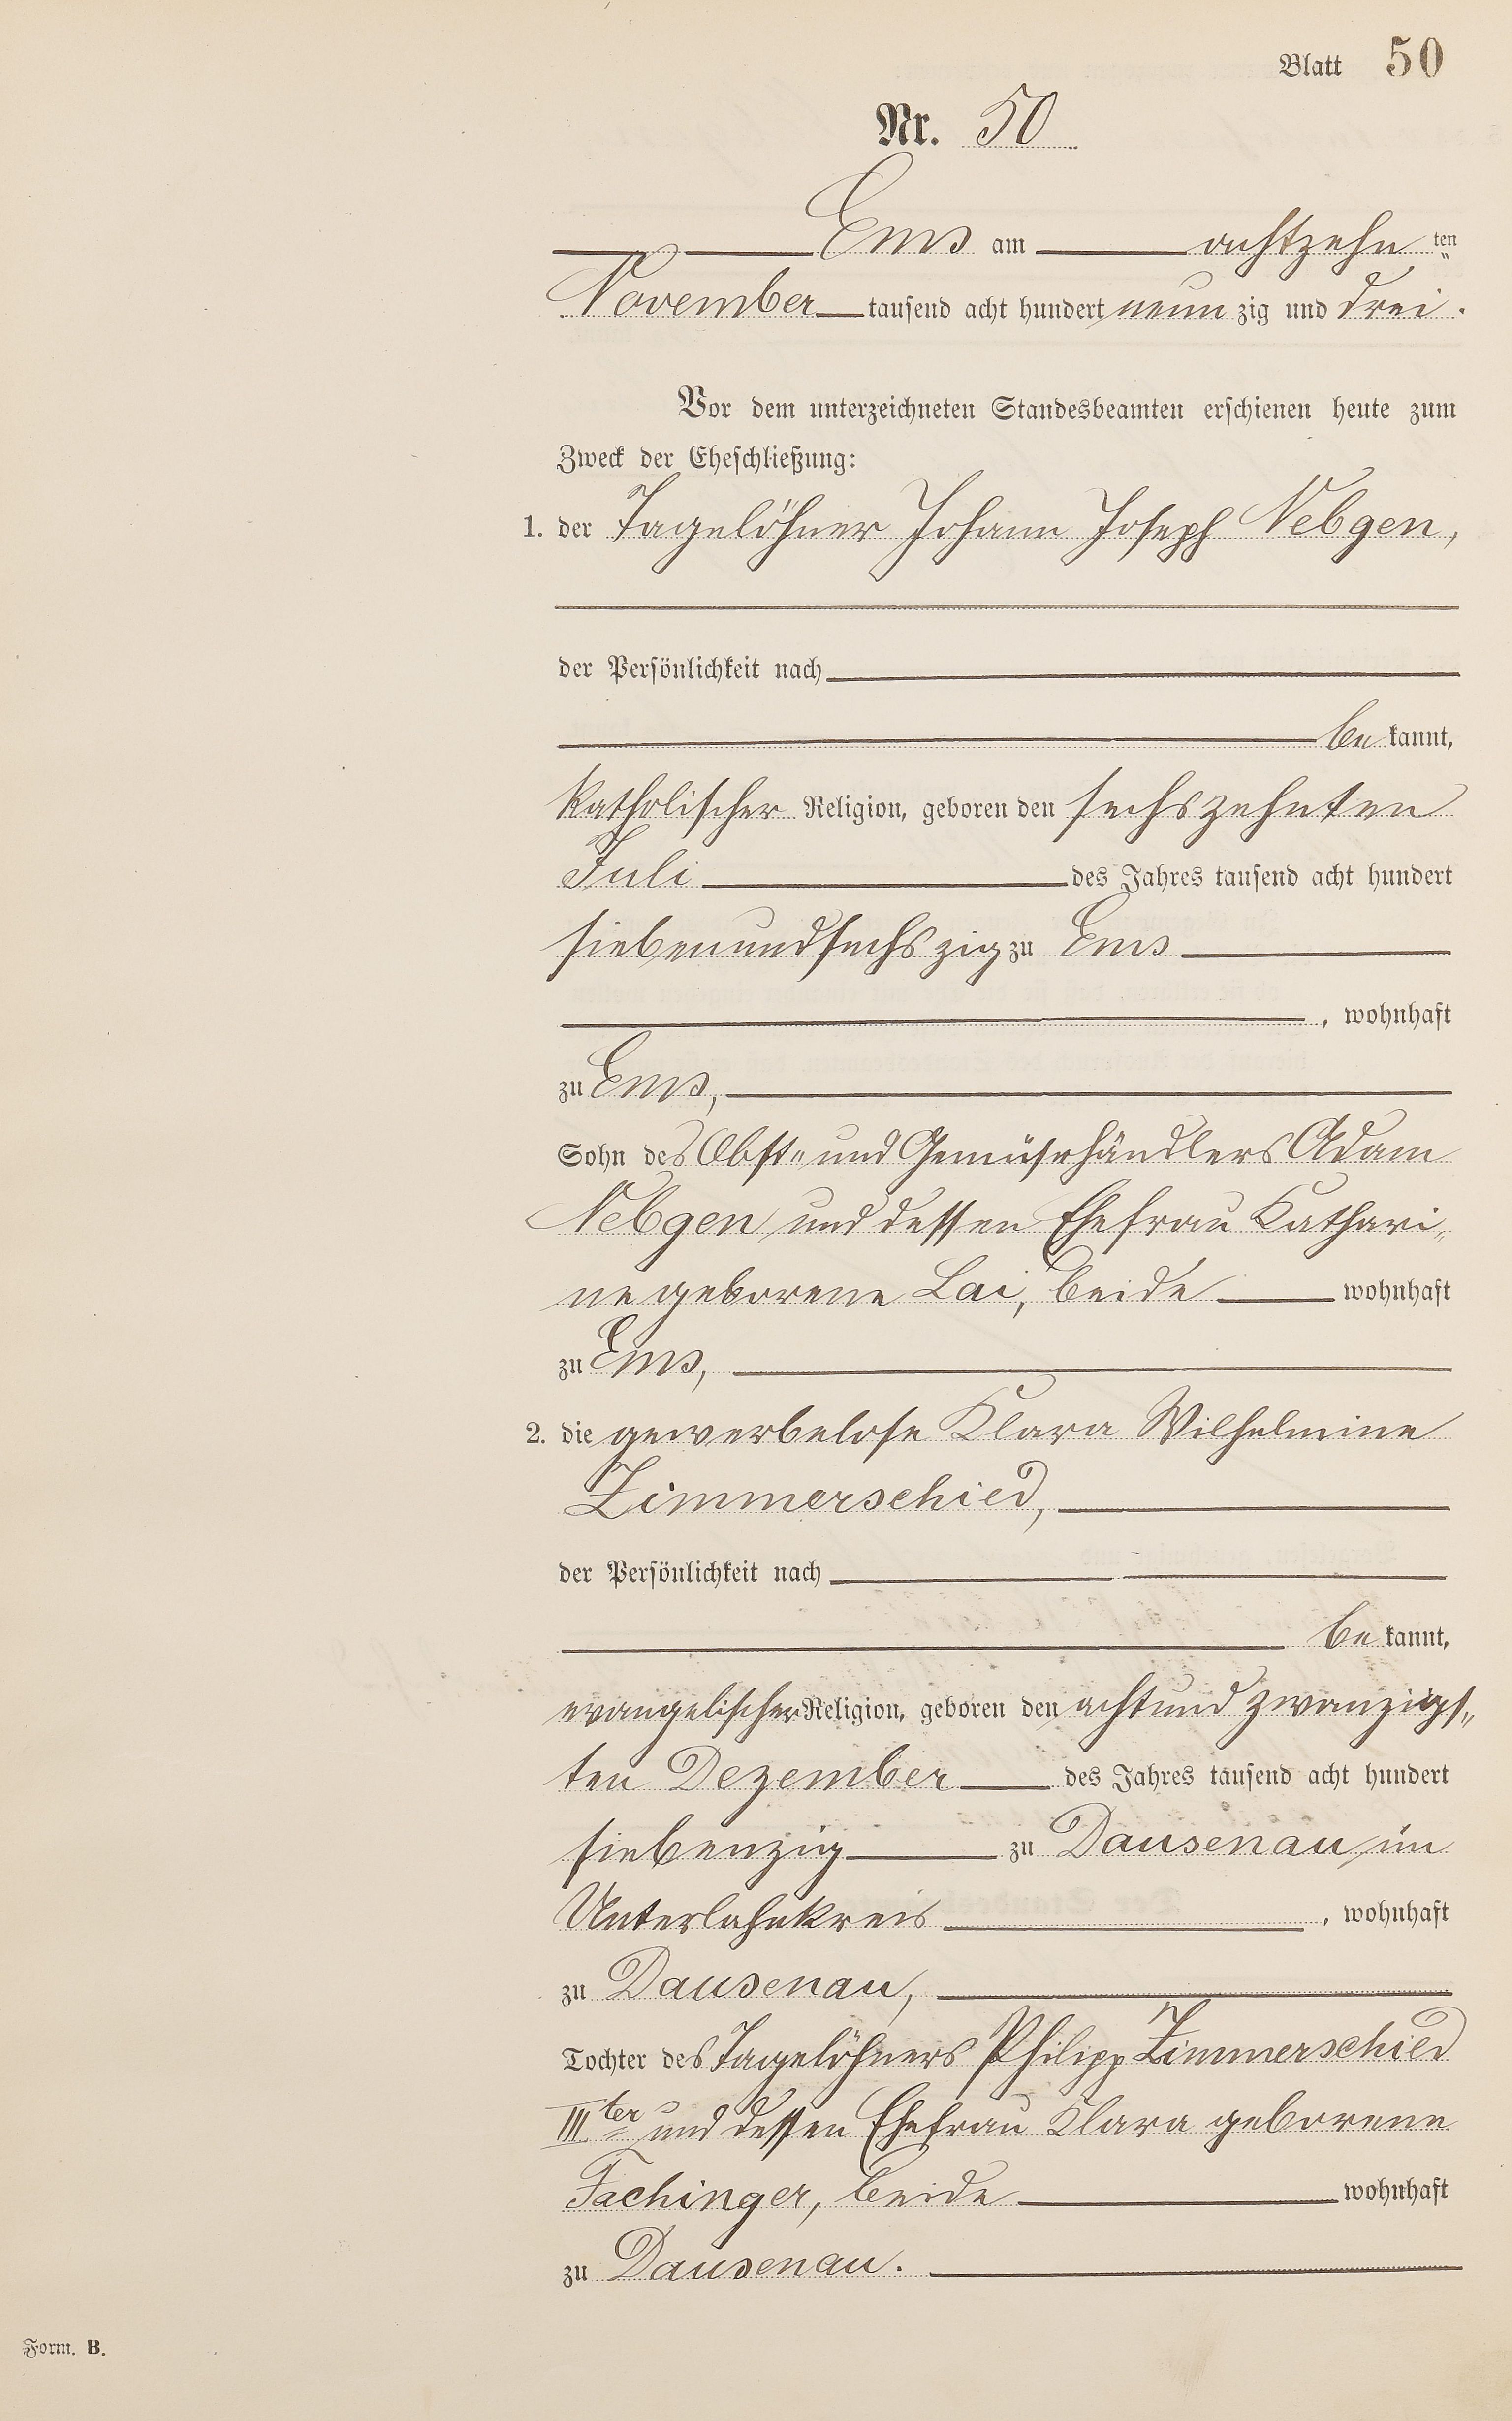 Blatt 50
Nr. 50
Ems am achtzehn ten
November tausend acht hundert neun zig und drei.
Vor dem unterzeichneten Standesbeamten erschienen heute zum
Zweck der Eheschließung:
1. der Tagelöhner Johann Joseph Nebgen,
der Persönlichkeit nach
be kannt,
katholischer Religion, geboren den sechszehnten
Juli des Jahres tausend acht hundert
siebenundsechszig zu Ems
, wohnhaft
zu Ems,
Sohn des Obst- und Gemüsehändlers Adam
Nebgen und dessen Ehefrau Kathari-
ne geborene Lai, beide wohnhaft
zu Ems,
2. die gewerbelose Klara Wilhelmine
Zimmerschied,
der Persönlichkeit nach
be kannt,
evangelischer Religion, geboren den achtundzwanzigs-
ten Dezember des Jahres tausend acht hundert
siebenzig zu Dausenau im
Unterlahnkreis , wohnhaft
zu Dausenau,
Tochter des Tagelöhners Philipp Zimmerschied
III ter und dessen Ehefrau Klara geborene
Fachinger, beide wohnhaft
zu Dausenau.
Form. B.